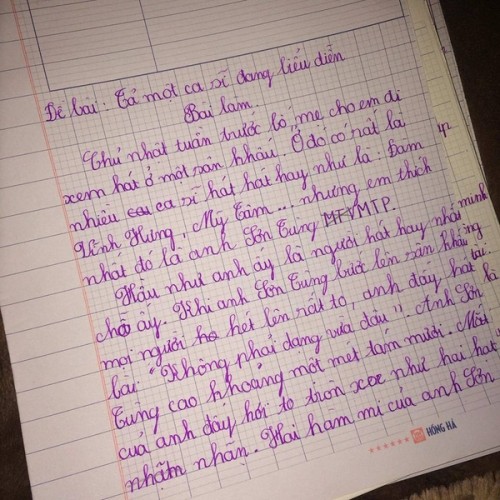 Đề bài: Tả một ca sĩ đang biểu diễn
Bài làm
Chủ nhật tuần trước bố, mẹ cho em đi
xem hát ở một sân khấu. Ở đó có rất
nhiều ca sĩ hát hát hay như là: Đàm
Vĩnh Hưng, Mỹ Tâm... nhưng em thích
nhất đó là anh Sơn Tùng MTP.
Hầu như anh ấy là người hát hay nhất
chỗ ấy. Khi anh Sơn Tùng bước lên sân khấu
mọi người hò hét lên rất to, anh đấy hát
bài "Không phải dạng vừa đâu". Anh Sơn
Tùng cao khoảng một mét tám mươi. Mắt
của anh đấy hơi to tròn xoe như hai hạt
nhãn. Hai hàm mi của anh Sơn
HỒNG HÀ